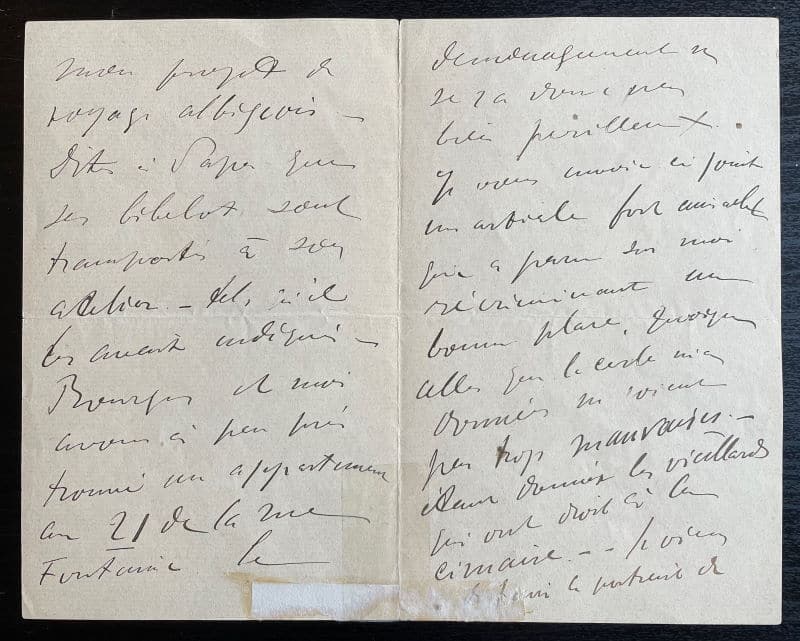 mon projet de
voyage albigeois -
Dites à Papa que
ses bibelots sont
transportés à son
atelier - tels qu'il
les avait indiqués -
Bourges et moi
avons à peu près
trouvé un appartement
au 21 de la rue
Fontaine le
déménagement ne
sera donc pas
bien périlleux.
Je vous envoie ci joint
un article fort aimable
qui a paru sur moi
récriminant une
bonne place, quoique
celles que le cercle m'a
données ne soient
pas trop mauvaises. -
étant donnés les vieillards
qui ont droit à la
cimaise. - - Je viens
de finir le portrait de